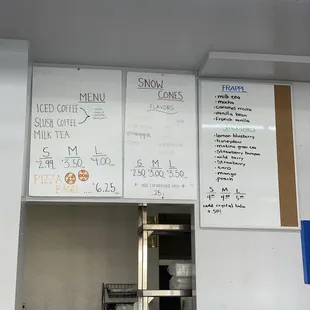 MENU
ICED COFFEE
SLUSH COFFEE
MILK TEA
S M L
2.99 3.50 4.00
PIZZA
BAGEL ...6.25
SNOW
CONES
FLAVORS
S M L
2.50 3.00 3.50
.25
FRAPPE
milk tea
mocha
caramel mocha
vanilla bean
french vanilla
lemon blueberry
honeydew
matcha green tea
strawberry banana
wild berry
strawberry
taro
mango
peach
S M L
add crystal boba
+ .50¢